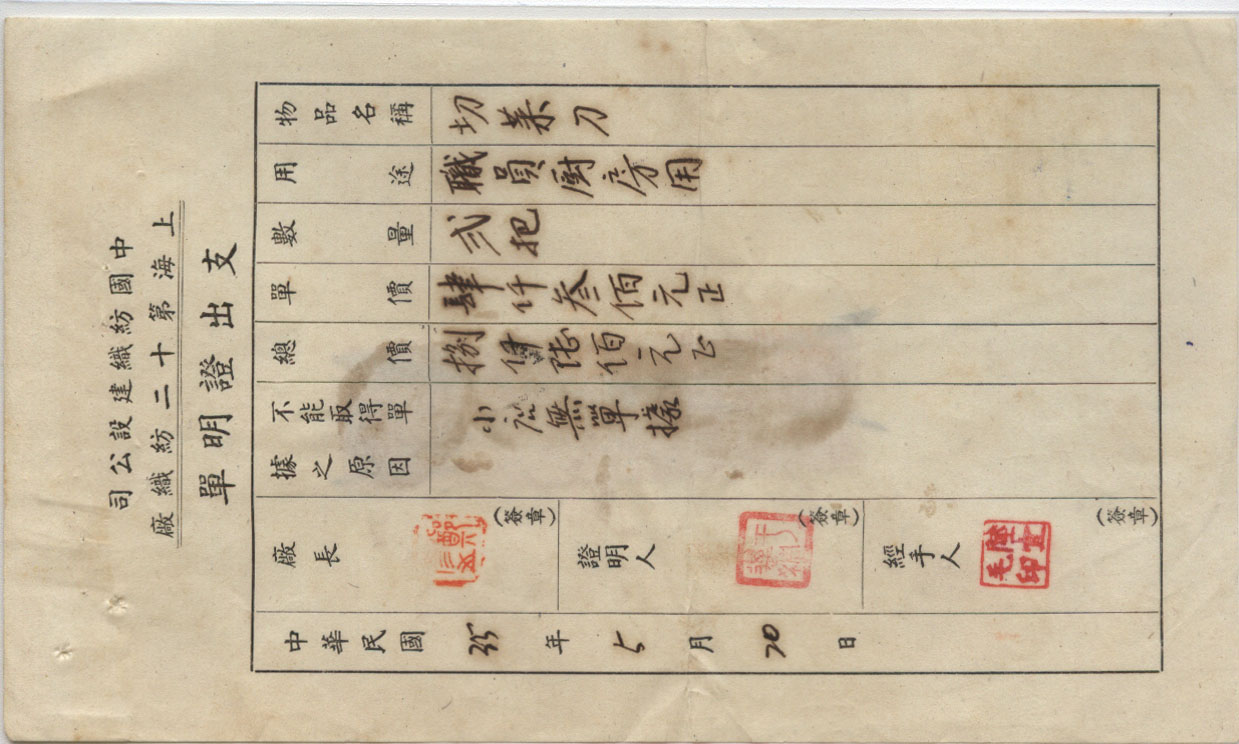 中國紡織建設公司
上海第十二紡織廠
支出證明單
物品名稱 切菜刀
用途 職員厨房用
數量 弍把
單價 肆仟叁佰元正
總價 捌仟陸佰元正
不能取得單據之原因 小店無單據
廠長 (簽章)
證明人 (簽章)
經手人 (簽章)
中華民國 35 年 5 月 20 日